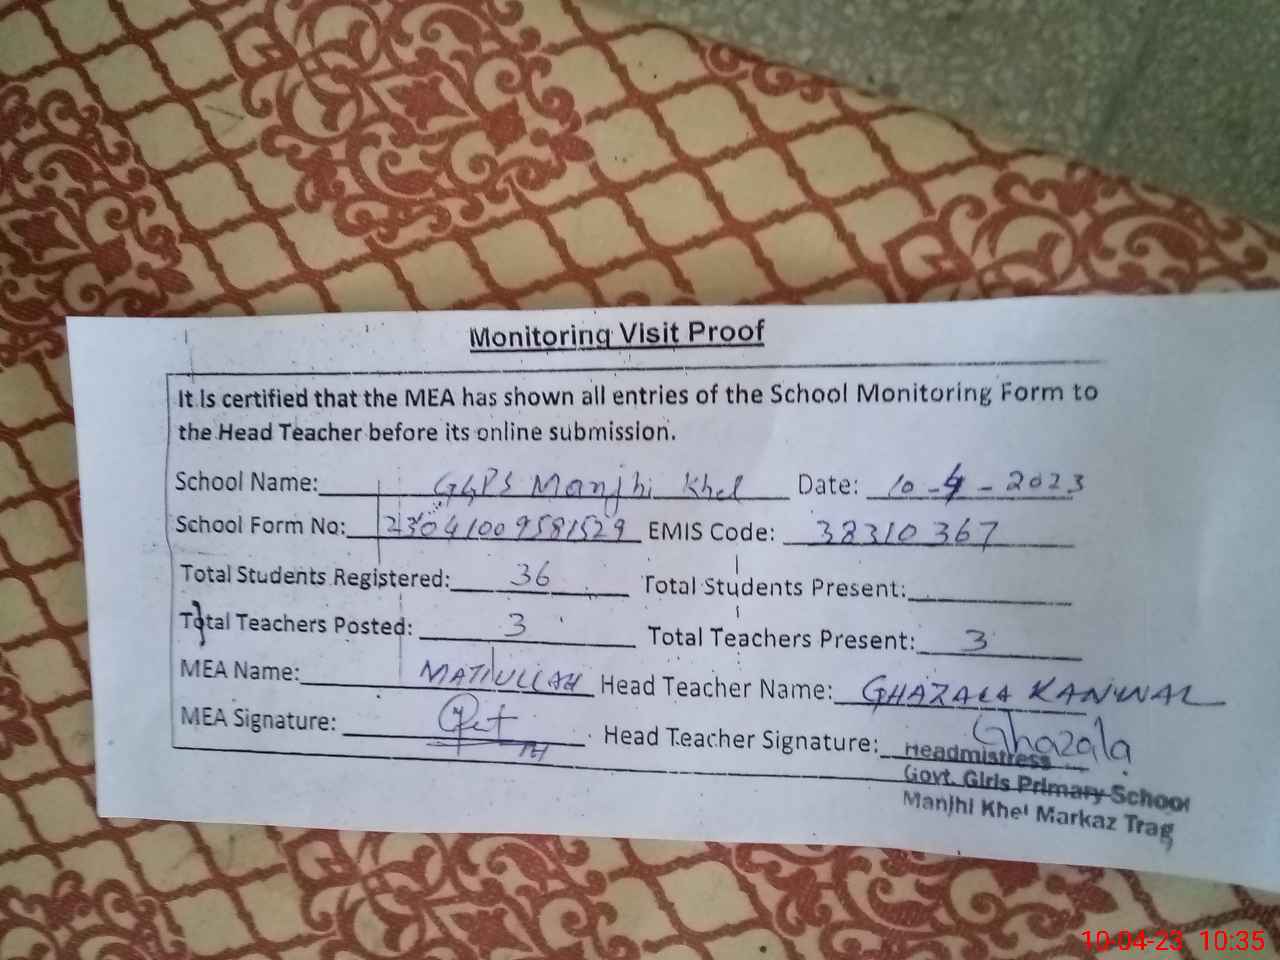 Monitoring Visit Proof
It is certified that the MEA has shown all entries of the School Monitoring Form to
the Head Teacher before its online submission.
School Name: GGPS Manjhi Khel Date: 10-4-2023
School Form No: 23041009581529 EMIS Code: 38310367
Total Students Registered: 36 Total Students Present:
Total Teachers Posted: 3 Total Teachers Present: 3
MEA Name: MATIULLAH Head Teacher Name: GHAZALA KANWAL
MEA Signature: Head Teacher Signature: Ghazala
Headmistress
Govt. Girls Primary School
Manjhi Khel Markaz Trag
10-04-23 10:35